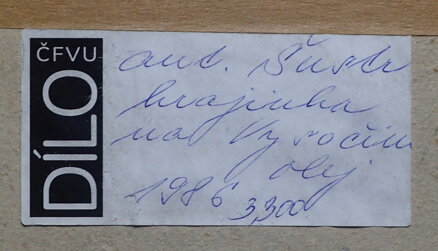 ČFVU
DÍLO
aut. Šustr
krajinka
na Vysočin
olej
1986 3,300